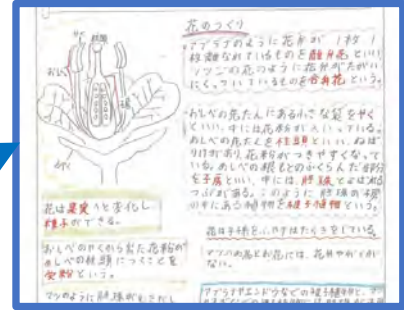 花のつくり
アブラナのように花弁が1枚1
枚離れているものを離弁花といい
ツツジの花のように花弁がたがい
にくっついているものを合弁花という。
おしべの先たんにある小さな袋をやく
といい、中には花粉が入っている。
めしべの先たんを柱頭といい、ねば
りけがあり、花粉がつきやすくなって
いる。めしべの根もとのふくらんだ部分
を子房といい、中には、胚珠とよばれる
つぶがある。このように胚珠が子房
の中にある植物を被子植物という。
花は子孫をふやすはたらきをしている。
マツの雌花と雄花には、花弁やがくが
ない。
柱頭
おしべ
花は果実へと変化し
種子ができる。
おしべのやくから出た花粉が
めしべの柱頭につくことを
受粉という。
マツのように胚珠がむきだし
アブラナやエンドウなどの被子植物と、マ